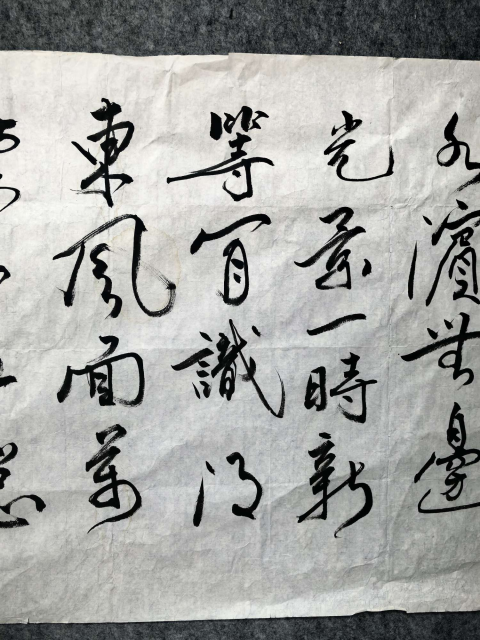 水濱無邊
光景一時新
等閒識得
東風面萬